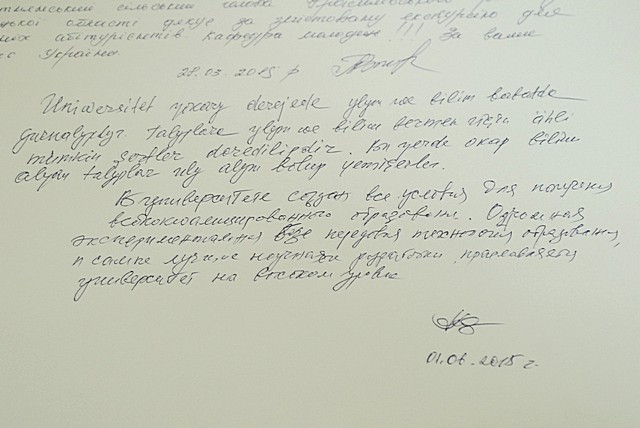 сільський голова
області дякує за змістовну екскурсію для
абітурієнтів. Кафедра молодці!!! За вами
Україна
28.03.2015 р
Uniwersitet ýokary derejede ylym we bilim babatda
gurnalypdyr. Talyplara ylym we bilim bermek üçin ähli
mümkin şertler döredilipdir. Bu ýerde okap bilim
alýan talyplar uly alym bolup ýetişerler.
В университете создан все условия для получения
высококвалифицированного образования. Огромная
экспериментальная база передовая технология образования,
и самые лучшие научные разработки прославляют
университет на высоком уровне
01.06.2015 г.